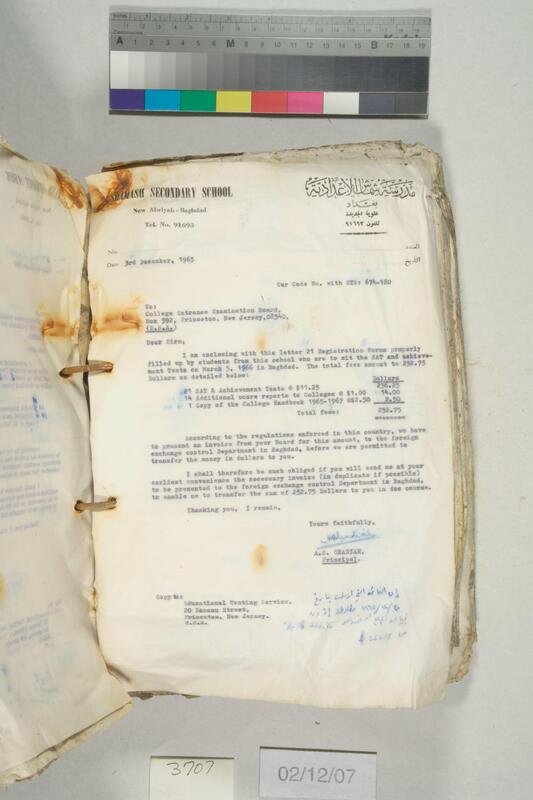 SHAMASH SECONDARY SCHOOL
New Alwiyah - Baghdad
Tel. No. 91693
مدرسة شماش الاعدادية
بغداد
علوية الجديدة
تلفون ٩١٦٩٣
No.
العدد
Date 3rd December, 1965
التاريخ
Our Code No. with ETS: 674-180
To:
College Entrance Examination Board,
Box 592, Princeton, New Jersey, 08540,
(U.S.A.)
Dear Sirs,
I am enclosing with this letter 21 Registration Forms properly
filled up by students from this school who are to sit the SAT and achieve-
ment Tests on March 5, 1966 in Baghdad. The total fees amount to 252.75
Dollars as detailed below:
Dollars
21 SAT & Achievement Tests @ $11.25 236.25
14 Additional score reports to Colleges @ $1.00 14.00
1 Copy of the College Handbook 1965-1967 @$2.50 2.50
Total fees: 252.75
According to the regulations enforced in this country, we have
to present an invoice from your Board for this amount, to the foreign
exchange control Department in Baghdad, before we are permitted to
transfer the money in dollars to you.
I shall therefore be much obliged if you will send us at your
earliest convenience the necessary invoice (in duplicate if possible)
to be presented to the foreign exchange control Department in Baghdad,
to enable us to transfer the sum of 252.75 Dollars to you in due course.
Thanking you, I remain,
Yours faithfully,
A.S. OBADIAH,
Principal.
Copy to:
Educational Testing Service,
20 Nassau Street,
Princeton, New Jersey.
U.S.A.
3707
02/12/07